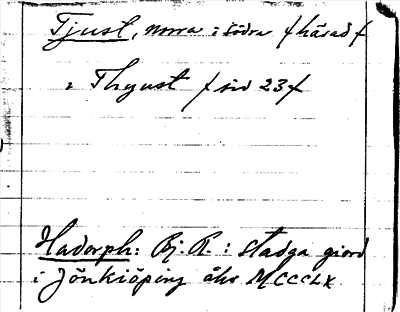 Tjust, norra i södra /härad/
i Thyust / sid 23/
Hadorph: Bj. R.: stadga giord
i Jönkiöping åhr MCCCLX